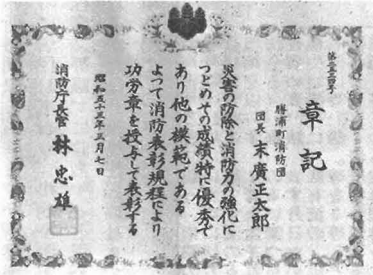 章記
勝浦町消防団
団長 末廣正太郎
災害の防除と消防力の強化に
つとめその成績特に優秀で
あり他の模範である
よつて消防表彰規程により
功労章を授与して表彰する
昭和五十三年三月七日
消防庁長官 林忠雄